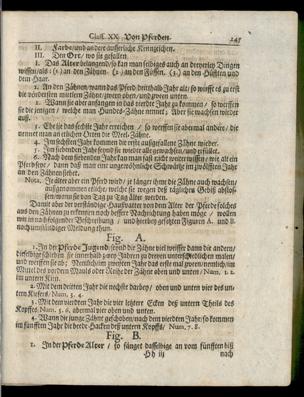 Class. XX. Von Pferden. 245
II. Farbe/und andere äusserliche Kennzeichen.
III. Den Ort/ wo sie gefallen.
I. Das Alter belangend/so kan man selbiges auch an dreyerley Dingen
wissen/als: (1.) an den Zähnen. (2.) an den Füssen. (3.) an den Hüfften und
dem Haar.
1. An den Zähnen/wann das Pferd dritthalb Jahr alt/ so wirfft es zu erst
die vördersten mittlern Zähne/zween oben/und zween unten.
2. Wann sie aber anfangen in das vierdte Jahr zu kommen / so werffen
sie die jenigen / welche man Hunds-Zähne nennet; Aber sie wachsen wieder
aus.
3. Ehe sie das sechste Jahr erreichen / so werffen sie abermal andere / die
nennet man an etlichen Orten die Meel-Zähne.
4. Im sechsten Jahr kommen die erste ausgefallene Zähne wieder.
5. Im siebenden Jahr seynd sie wieder alle gewachsen/und erfüllet.
6. Nach dem siebenden Jahr kan man fast nicht weiter wissen / wie alt ein
Pferd sey / dann daß man eine ungewöhnliche Schwärtze im
an den Zähnen siehet.
NOTA. Je älter aber ein Pferd wird/ je länger ihme die Zähne auch wachsen/
ausgenommen etliche/ welche sie wegen deß täglichen Gebiß
sen/wann sie von Tag zu Tag älter werden.
Damit aber der verständige Haußvatter von dem Alter der Pferde solches
aus den Zähnen zu erkennen noch bessere Nachrichtung haben möge / wollen
wir in nachfolgender Beschreibung / und hierbey gesetzten Figuren A. und B.
noch umständiger Meldung thun.
Fig. A.
1. In der Pferde Jugend/seynd die Zähne viel weisser dann die andern/
dieselbige schieben sie innerhalb 3 oder Jahren zu dreyen unterschiedlichen malen/
und werffen sie ab; Menschlichem zweyten Jahr das erste mal zween/nemlich im
Mittel des vordern Mauls oder Reihe der Zähne oben und unten/ Num. 1. 2.
im untern Kien.
2. Mit dem dritten Jahr die nechste darbey/ oben und unten vier des un-
tern Kiefers/ Num. 3. 4.
3. Mit dem vierdten Jahr die vier letzten Ecken deß untern Theils des
Kopffes Num. 5. 6. abermal vier oben und unten.
4. Wann die junge Zähne geschoben/nach dem vierdten Jahr/ so kommen
im fünfften Jahr die beede Hacken deß untern Kopffs/ Num. 7. 8.
Fig. B.
1. In der Pferde Alter / so fänget dasselbige an vom fünfften biß
Hh iij nach